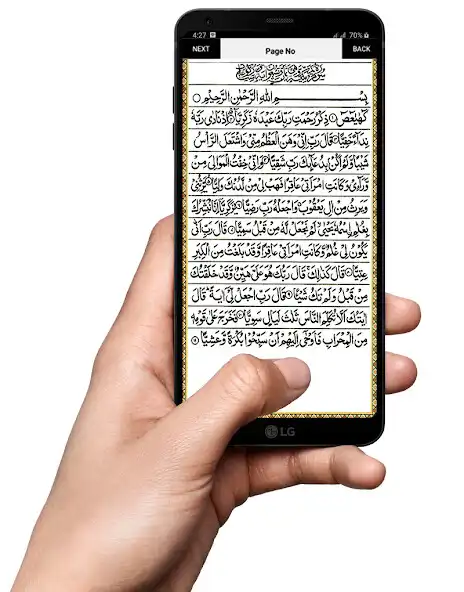 4:27 70%
NEXT Page No BACK
بِسْمِ اللّٰهِ الرَّحْمٰنِ الرَّحِيْمِ
كٓهٰيٰعٓصٓ ذِكْرُ رَحْمَتِ رَبِّكَ عَبْدَهٗ زَكَرِيَّا اِذْ نَادٰى رَبَّهٗ
نِدَآءً خَفِيًّا قَالَ رَبِّ اِنِّىْ وَهَنَ الْعَظْمُ مِنِّىْ وَاشْتَعَلَ الرَّاْسُ
شَيْبًا وَّلَمْ اَكُنْۢ بِدُعَآئِكَ رَبِّ شَقِيًّا وَاِنِّىْ خِفْتُ الْمَوَالِىَ مِنْ
وَّرَآءِىْ وَكَانَتِ امْرَاَتِىْ عَاقِرًا فَهَبْ لِىْ مِنْ لَّدُنْكَ وَلِيًّا يَّرِثُنِىْ
وَيَرِثُ مِنْ اٰلِ يَعْقُوْبَ وَاجْعَلْهُ رَبِّ رَضِيًّا يٰزَكَرِيَّآ اِنَّا نُبَشِّرُكَ
بِغُلٰمِ ِۨاسْمُهٗ يَحْيٰى لَمْ نَجْعَلْ لَّهٗ مِنْ قَبْلُ سَمِيًّا قَالَ رَبِّ اَنّٰى
يَكُوْنُ لِىْ غُلٰمٌ وَّكَانَتِ امْرَاَتِىْ عَاقِرًا وَّقَدْ بَلَغْتُ مِنَ الْكِبَرِ
عِتِيًّا قَالَ كَذٰلِكَ قَالَ رَبُّكَ هُوَ عَلَىَّ هَيِّنٌ وَّقَدْ خَلَقْتُكَ
مِنْ قَبْلُ وَلَمْ تَكُ شَيْـًٔا قَالَ رَبِّ اجْعَلْ لِّىْٓ اٰيَةً قَالَ
اٰيَتُكَ اَلَّا تُكَلِّمَ النَّاسَ ثَلٰثَ لَيَالٍ سَوِيًّا فَخَرَجَ عَلٰى قَوْمِهٖ
مِنَ الْمِحْرَابِ فَاَوْحٰٓى اِلَيْهِمْ اَنْ سَبِّحُوْا بُكْرَةً وَّعَشِيًّا
LG